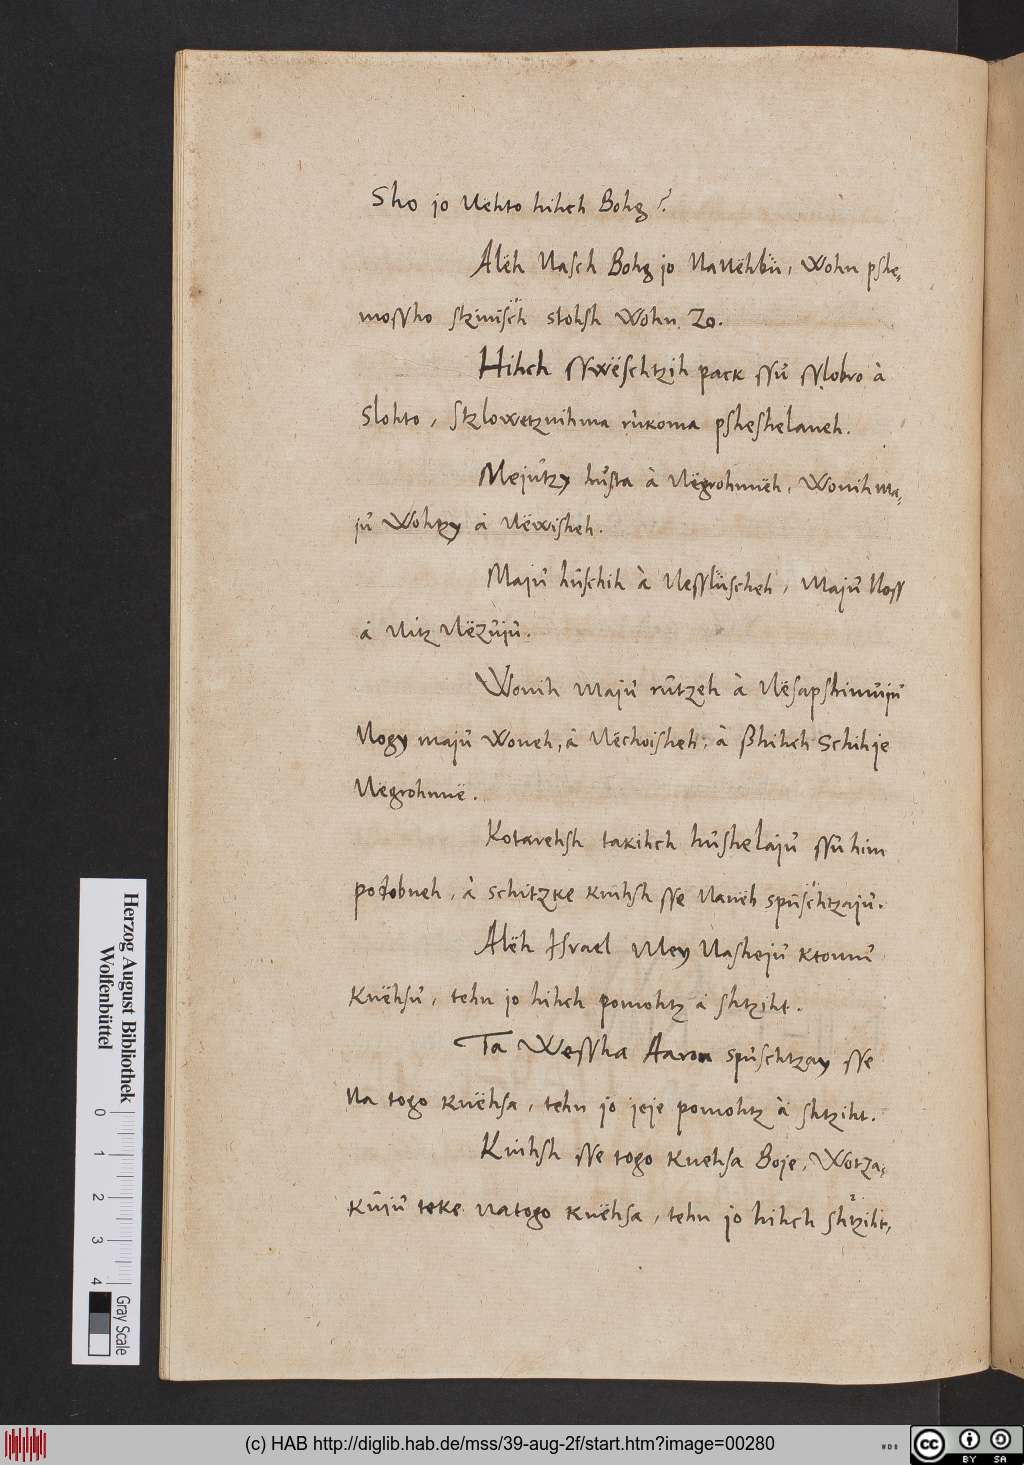 Sho jo Nehto hihch Bohg?
Alëh Nasch Bohg jo Nanëhbü, Wohn pshe,
mossho stzinisch stohsh Wohn Zo.
Hihch sswëschtzih pack ssů sslobro à
Slohto, Stzlowetznihma růkoma psheshelaneh.
Mejůtzy hůsta à Nëgrohmnëh, Wonih ma,
jů Wohtzy à Nëwisheh.
Majů hůschih à Nesslüscheh, Majů Noss
à Nitz NëZůjů.
Wonih majů růtzeh à Nësapshimůjů
Nogy majů Woneh, à Nëchoisheh, à ßhihch Schihje
Nëgrohmnë.
Kotarehsh takihch hůshelajů ssů him
podobneh, à schitzke knihsh sse Nanëh spůschtzajů.
Alëh Israel Mey Nashejů ktomů
Knëhsů, tehn jo hihch pomohtz à shtziht.
Ta Wessha Aaron spůschtzay sse
Na togo knëhsa, tehn jo jeje pomohtz à shtziht.
Knihsh sse togo knehsa Boje, WotZa,
kůjů teke na togo knëhsa, tehn jo hihch shtziht,
Herzog August Bibliothek
Wolfenbüttel
0 1 2 3 4
Gray Scale
(c) HAB http://diglib.hab.de/mss/39-aug-2f/start.htm?image=00280
WDB
cc BY SA